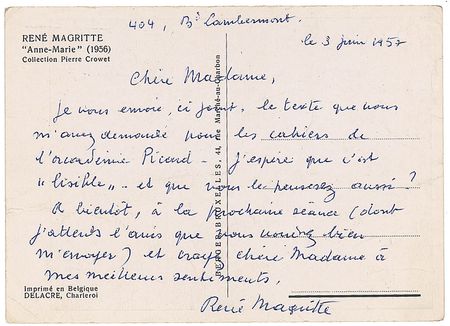 404, Bd Lambermont.
RENÉ MAGRITTE
"Anne-Marie" (1956)
Collection Pierre Crowet
le 3 juin 1957
Chère Madame,
Je vous envoie, ci joint, le texte que vous
m'avez demandé pour les cahiers de
l'académie Picard - J'espère que c'est
"lisible" - et que vous le penserez aussi?
A bientôt, à la prochaine séance (dont
j'attends l'avis que vous voudrez bien
m'envoyer) et croyez chère Madame à
mes meilleurs sentiments,
René Magritte
Imprimé en Belgique
DELACRE, Charleroi
BRUXELLES, 44, rue Marché-au-Charbon